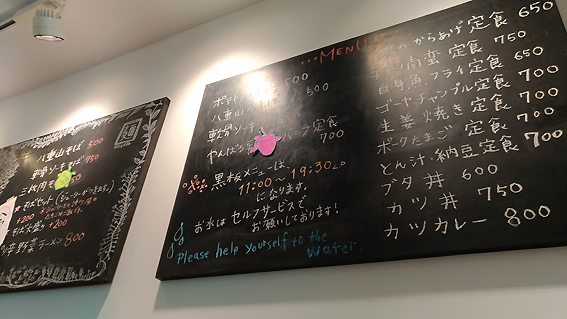 八重山そば 500
軟骨ソーキそば 750
三枚肉そば
そばセット(ジューシーがつきます)
+200
そば大盛 +200
野菜ラーメン 800
麺
...MENU...
500
八重山 500
軟骨ソーキ
やんばる 定食 700
黒板メニューは、
11:00〜19:30L.O
になります。
お水はセルフサービスで
お願いしております!
Please help yourself to the
Water.
からあげ定食 650
南蛮定食 750
白身魚フライ定食 650
ゴーヤチャンプル定食 700
生姜焼き定食 700
ポークたまご定食 700
とん汁・納豆定食 700
ブタ丼 600
カツ丼 750
カツカレー 800